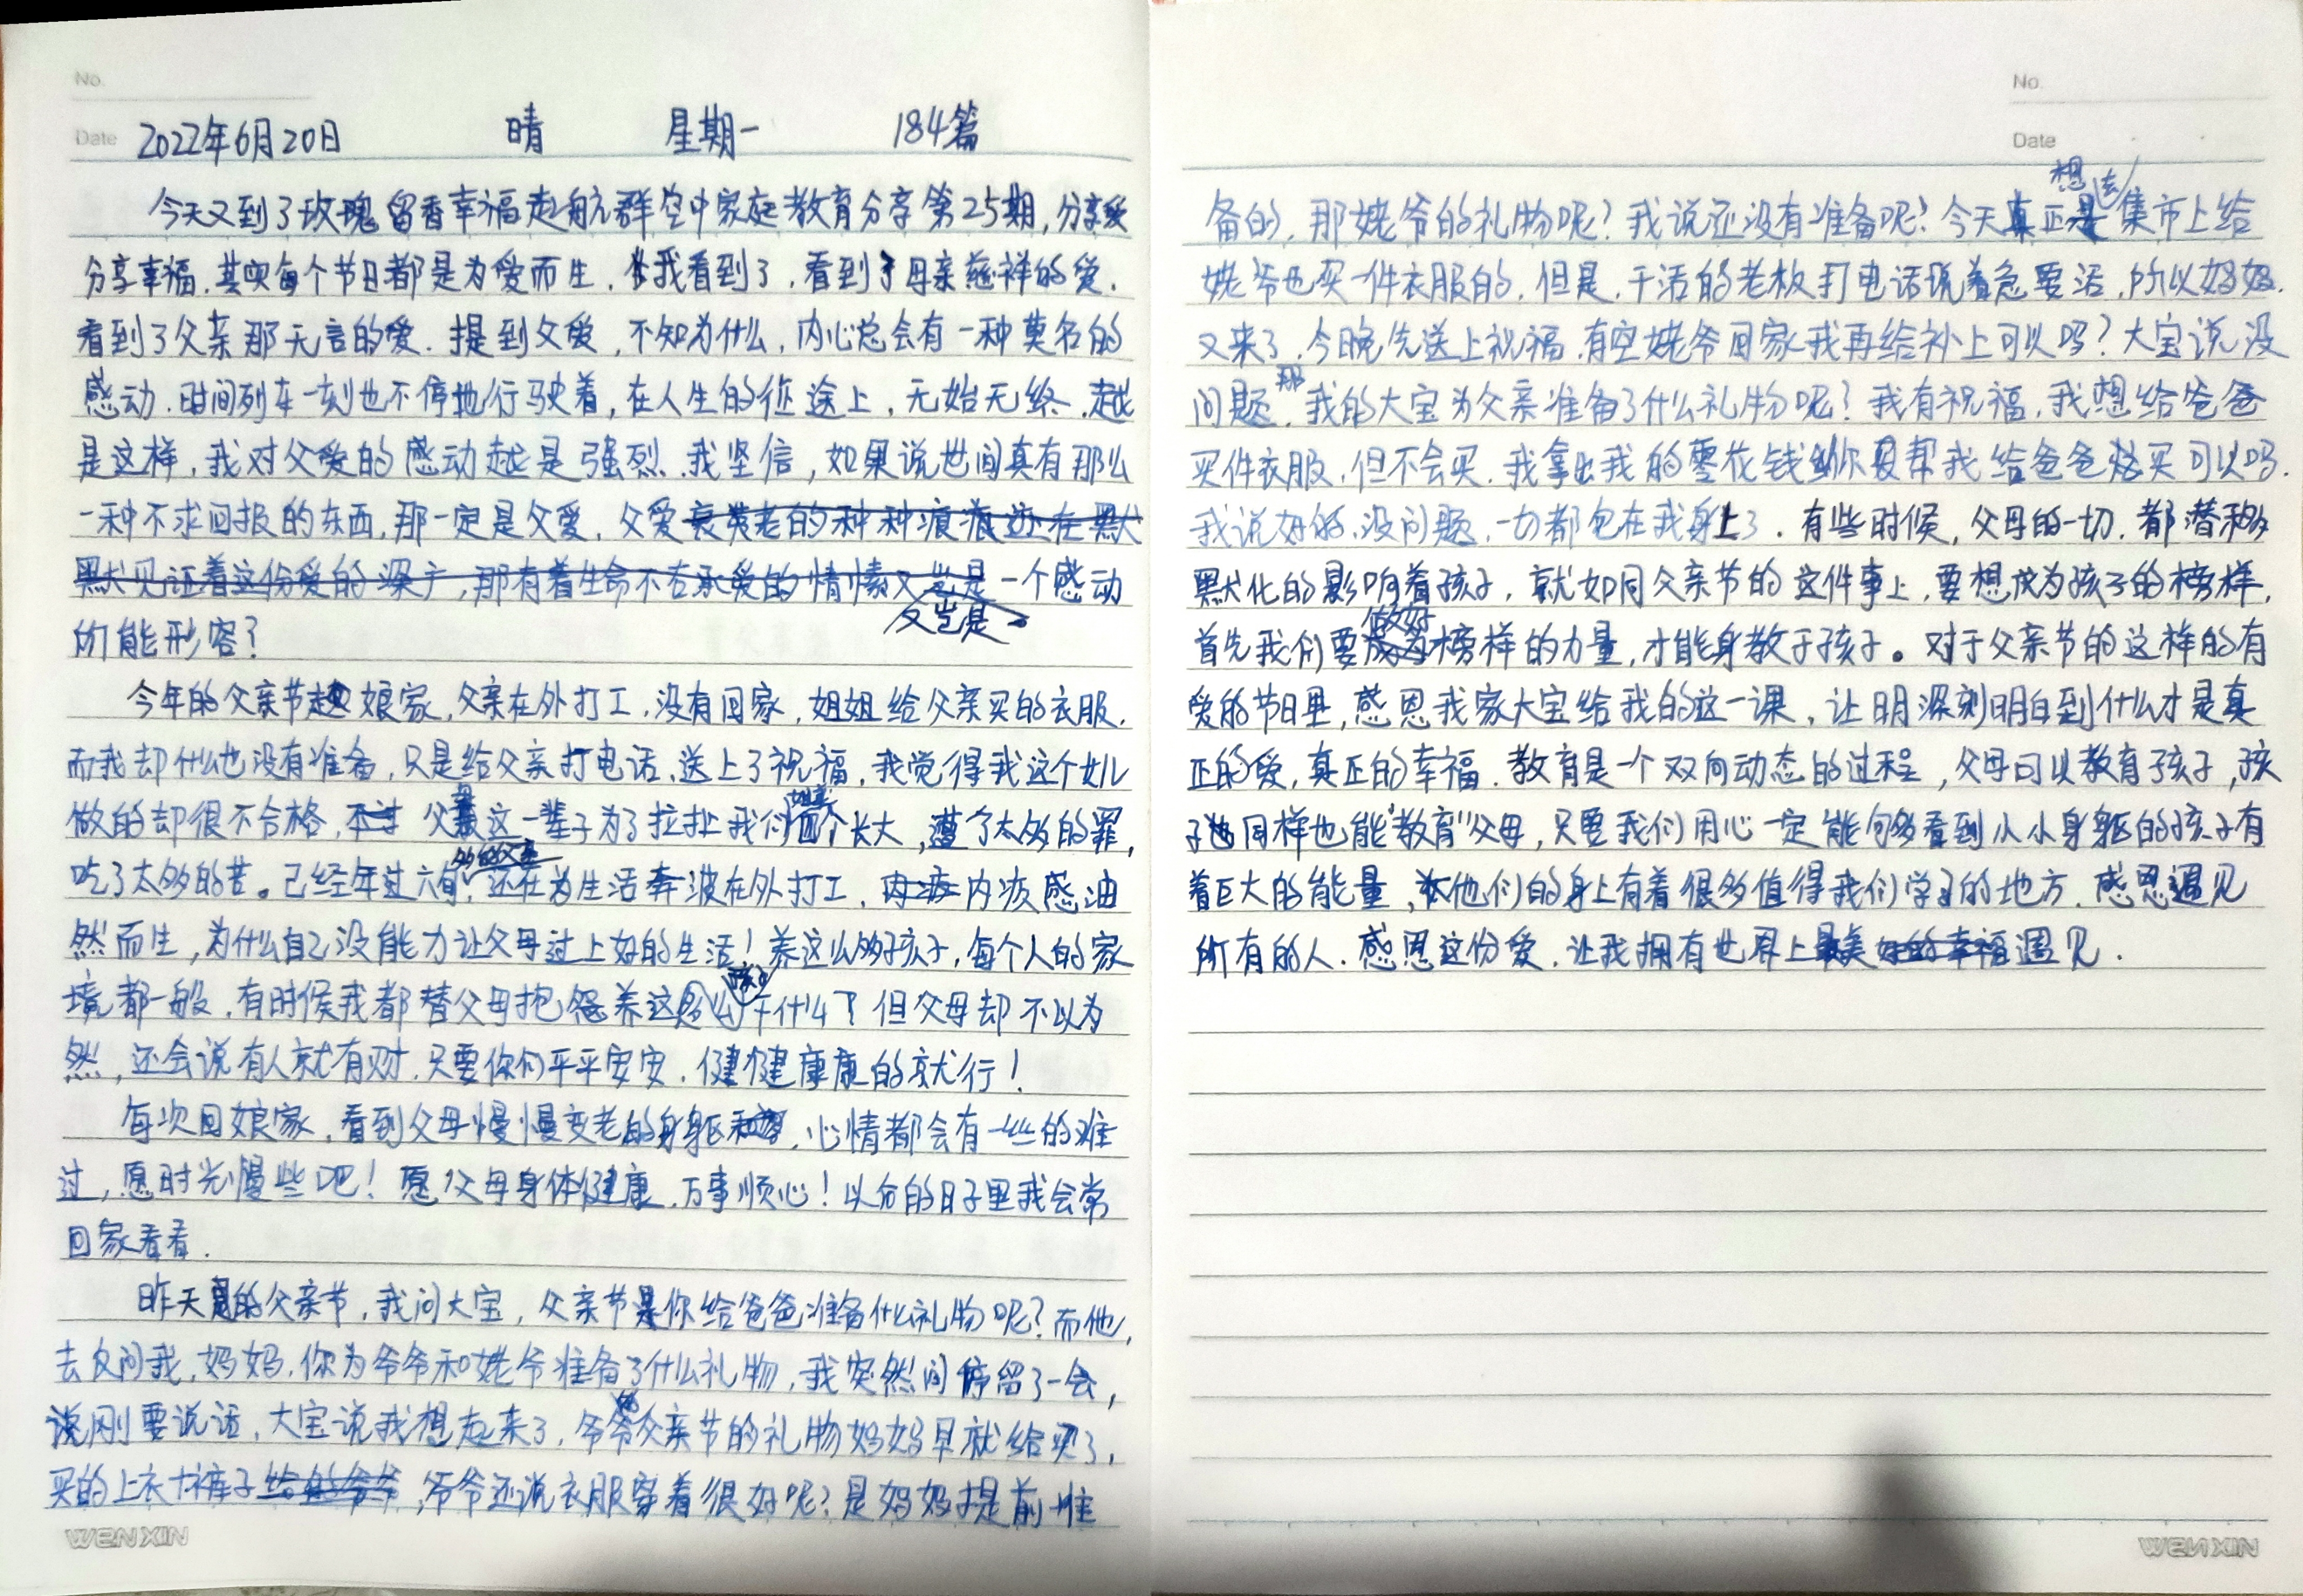 No.
Date 2022年6月20日 晴 星期一 184篇
今天又到了玫瑰留香幸福起航群空中家庭教育分享第25期,分享爱
分享幸福.其实每个节日都是为爱而生.我看到了.看到了母亲慈祥的爱.
看到了父亲那无言的爱.提到父爱,不知为什么,内心总会有一种莫名的
感动.时间列车一刻也不停地行驶着,在人生的征途上,无始无终.越
是这样,我对父爱的感动越是强烈.我坚信,如果说世间真有那么
一种不求回报的东西,那一定是父爱,父爱
又岂是一个感动
所能形容?
今年的父亲节 娘家,父亲在外打工,没有回家,姐姐给父亲买的衣服.
而我却什么也没有准备,只是给父亲打电话,送上了祝福,我觉得我这个女儿
做的却很不合格, 父母这一辈子为了拉扯我们 长大,遭了太多的罪,
吃了太多的苦。已经年过六旬,还在为生活奔波在外打工, 内疚感油
然而生,为什么自己没能力让父母过上好的生活!养这么多孩子,每个人的家
境都一般,有时候我都替父母抱怨养这 干什么?但父母却不以为
然,还会说有人就有财,只要你们平平安安.健健康康的就行!
每次回娘家,看到父母慢慢变老的身躯,心情都会有一些的难
过,愿时光慢些吧!愿父母身体健康,万事顺心!以后的日子里我会常
回家看看.
昨天是的父亲节,我问大宝,父亲节你给爸爸准备什么礼物呢?而他,
去反问我,妈妈,你为爷爷和姥爷准备了什么礼物,我突然间停留了一会,
刚要说话,大宝说我想起来了,爷爷父亲节的礼物妈妈早就给买了,
买的上衣+裤子,爷爷还说衣服穿着很好呢?是妈妈提前准
WENXIN
No.
Date
备的,那姥爷的礼物呢?我说还没有准备呢?今天真正想去集市上给
姥爷也买一件衣服的,但是,干活的老板打电话说着急要活,所以妈妈.
又来了,今晚先送上祝福,有空姥爷回家我再给补上可以吗?大宝说没
问题.那我的大宝为父亲准备了什么礼物呢?我有祝福,我想给爸爸
买件衣服,但不会买.我拿出我的零花钱 你 帮我给爸爸 买可以吗.
我说好的,没问题,一切都包在我身上了.有些时候,父母的一切.都潜移
默化的影响着孩子,就如同父亲节的这件事上,要想成为孩子的榜样,
首先我们要做好榜样的力量,才能身教于孩子。对于父亲节的这样的有
爱的节日里,感恩我家大宝给我的这一课,让明深刻明白到什么才是真
正的爱,真正的幸福.教育是一个双向动态的过程,父母可以教育孩子,孩
子 同样也能"教育"父母,只要我们用心一定能够看到从小身躯的孩子有
着巨大的能量,他们的身上有着很多值得我们学习的地方.感恩遇见
所有的人.感恩这份爱.让我拥有世界上最美 遇见.
WENXIN